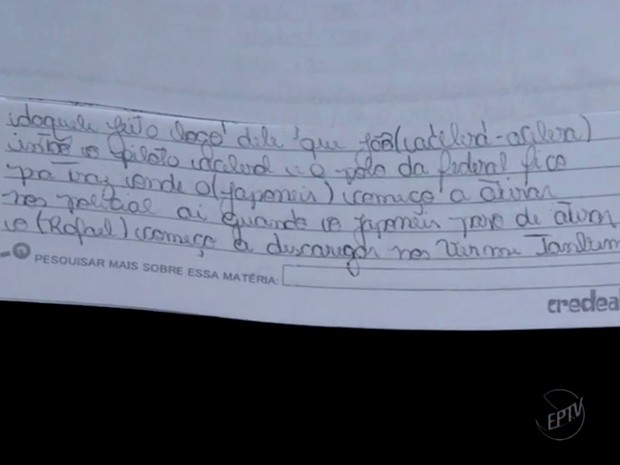 daquele jeito logo dele que foã (acelera-acelera)
então o piloto acelera e o polo da federal fico
pra traz onde o (Japoneis) começo a atirar
nos polícial ai quando o japoneis paro de atirar
o (Rafael) começo a descarregar nos verme Também
PESQUISAR MAIS SOBRE ESSA MATÉRIA:
credeal
EPTV